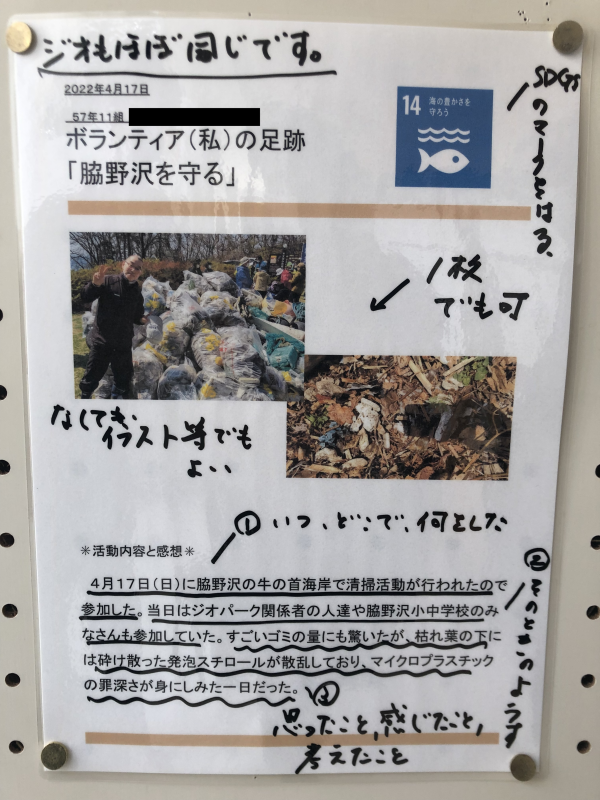 ジオもほぼ同じです。
2022年4月17日
57年11組
ボランティア(私)の足跡
「脇野沢を守る」
14 海の豊かさを
守ろう
SDGsのマークをはる、
1枚
でも可
なしでも、
イラスト等でも
よい
① いつ、どこで、何をした
＊活動内容と感想＊
4月17日(日)に脇野沢の牛の首海岸で清掃活動が行われたので
参加した。当日はジオパーク関係者の人達や脇野沢小中学校のみ
なさんも参加していた。すごいゴミの量にも驚いたが、枯れ葉の下に
は砕け散った発泡スチロールが散乱しており、マイクロプラスチック
の罪深さが身にしみた一日だった。
② そのときのようす
③
思ったこと,感じたこと,
考えたこと